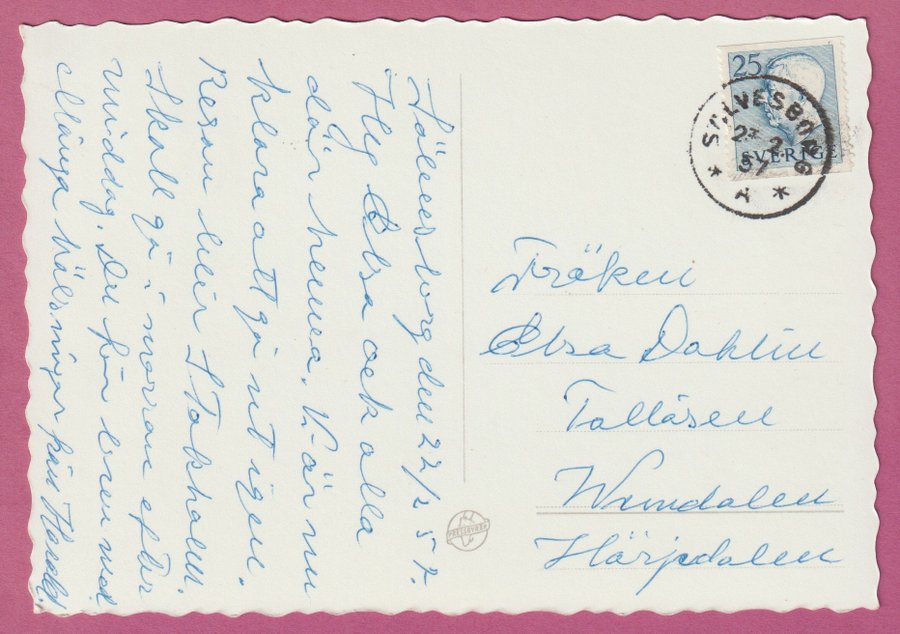 Sölvesborg den 22/2 57.
Hej Elsa och alla
där hemma. är nu
klara att gå ut igen.
Resan blir Stokholm.
Skall gå i morron efter
middag. Du får brev med
Många hälsningar från Harald.
25
SVERIGE
SÖLVESBORG
2 57
A
Fröken
Elsa Dahlin
Tallåsen
Wemdalen
Härjedalen
PRESSBYRÅN